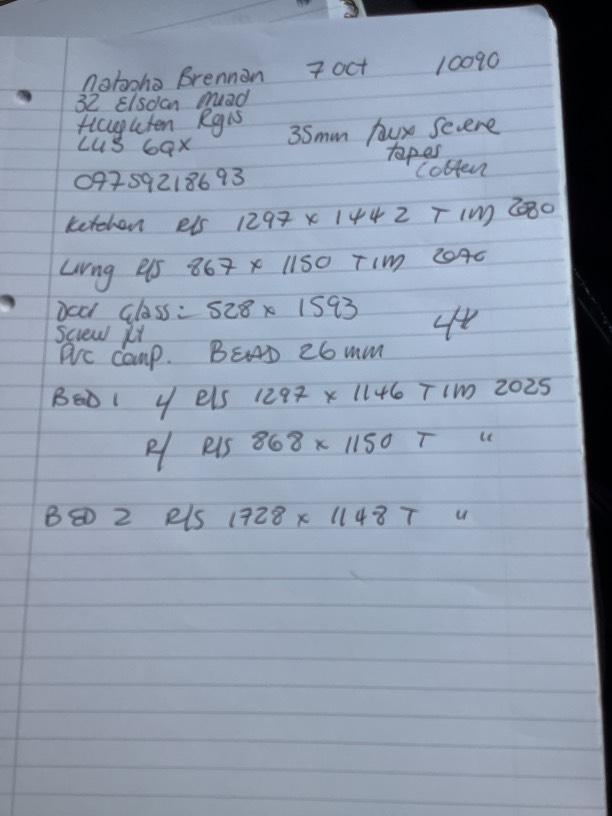 Natasha Brennan 7 Oct 10090
32 Elsdan Muad
Haughton Rgis
LU5 6QX 35mm faux Severe
tapes
Cotten
09759218693
Ketchen R/S 1297 x 1442 T IM 2080
Livng R/S 867 x 1150 TIM
Docl Glass:- 528 x 1593
Screw fit
PVC comp. BEAD 26mm
BED 1 L/ R/S 1297 x 1146 TIM 2025
R/ R/S 868 x 1150 T "
BED 2 R/S 1728 x 1148 T "